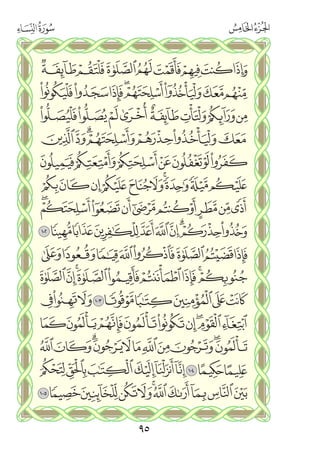 سُورَةُ النِّسَاءِ
الجُزْءُ الخَامِسُ
وَإِذَا كُنتَ فِيهِمْ فَأَقَمْتَ لَهُمُ ٱلصَّلَوٰةَ فَلْتَقُمْ طَآئِفَةٌ
مِّنْهُم مَّعَكَ وَلْيَأْخُذُوٓا۟ أَسْلِحَتَهُمْ فَإِذَا سَجَدُوا۟ فَلْيَكُونُوا۟
مِن وَرَآئِكُمْ وَلْتَأْتِ طَآئِفَةٌ أُخْرَىٰ لَمْ يُصَلُّوا۟ فَلْيُصَلُّوا۟
مَعَكَ وَلْيَأْخُذُوا۟ حِذْرَهُمْ وَأَسْلِحَتَهُمْ ۗ وَدَّ ٱلَّذِينَ
كَفَرُوا۟ لَوْ تَغْفُلُونَ عَنْ أَسْلِحَتِكُمْ وَأَمْتِعَتِكُمْ فَيَمِيلُونَ
عَلَيْكُم مَّيْلَةً وَٰحِدَةً ۚ وَلَا جُنَاحَ عَلَيْكُمْ إِن كَانَ بِكُمْ
أَذًى مِّن مَّطَرٍ أَوْ كُنتُم مَّرْضَىٰٓ أَن تَضَعُوٓا۟ أَسْلِحَتَكُمْ ۖ
وَخُذُوا۟ حِذْرَكُمْ ۗ إِنَّ ٱللَّهَ أَعَدَّ لِلْكَـٰفِرِينَ عَذَابًا مُّهِينًا ١٠٢
فَإِذَا قَضَيْتُمُ ٱلصَّلَوٰةَ فَٱذْكُرُوا۟ ٱللَّهَ قِيَـٰمًا وَقُعُودًا وَعَلَىٰ
جُنُوبِكُمْ ۚ فَإِذَا ٱطْمَأْنَنتُمْ فَأَقِيمُوا۟ ٱلصَّلَوٰةَ ۚ إِنَّ ٱلصَّلَوٰةَ
كَانَتْ عَلَى ٱلْمُؤْمِنِينَ كِتَـٰبًا مَّوْقُوتًا ١٠٣ وَلَا تَهِنُوا۟ فِى
ٱبْتِغَآءِ ٱلْقَوْمِ ۖ إِن تَكُونُوا۟ تَأْلَمُونَ فَإِنَّهُمْ يَأْلَمُونَ كَمَا
تَأْلَمُونَ ۖ وَتَرْجُونَ مِنَ ٱللَّهِ مَا لَا يَرْجُونَ ۗ وَكَانَ ٱللَّهُ
عَلِيمًا حَكِيمًا ١٠٤ إِنَّآ أَنزَلْنَآ إِلَيْكَ ٱلْكِتَـٰبَ بِٱلْحَقِّ لِتَحْكُمَ
بَيْنَ ٱلنَّاسِ بِمَآ أَرَىٰكَ ٱللَّهُ ۚ وَلَا تَكُن لِّلْخَآئِنِينَ خَصِيمًا ١٠٥
٩٥